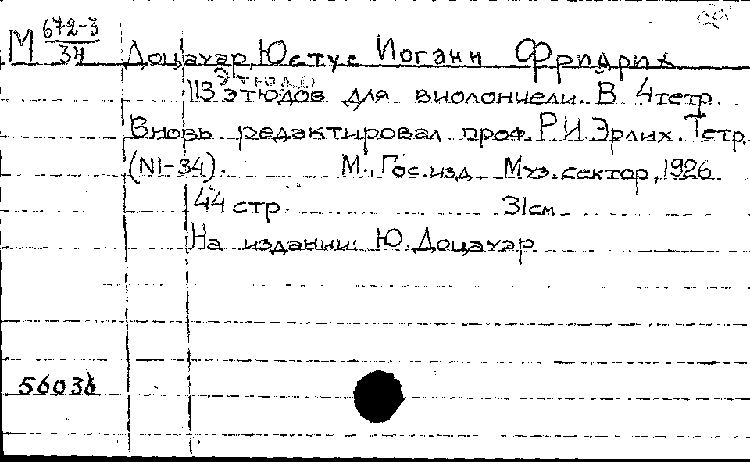 М 672-3/34
Доцауар, Юстус Иоганн Фридрих
Этюды
113 этюдов для виолончели. В 4 тетр.
Вновь редактировал проф. Р.И. Эрлих. Тетр.
(N1-34). М., Гос. изд. Муз. сектор, 1926
44 стр. 31см.
На издании: Ю. Доцауэр
56036